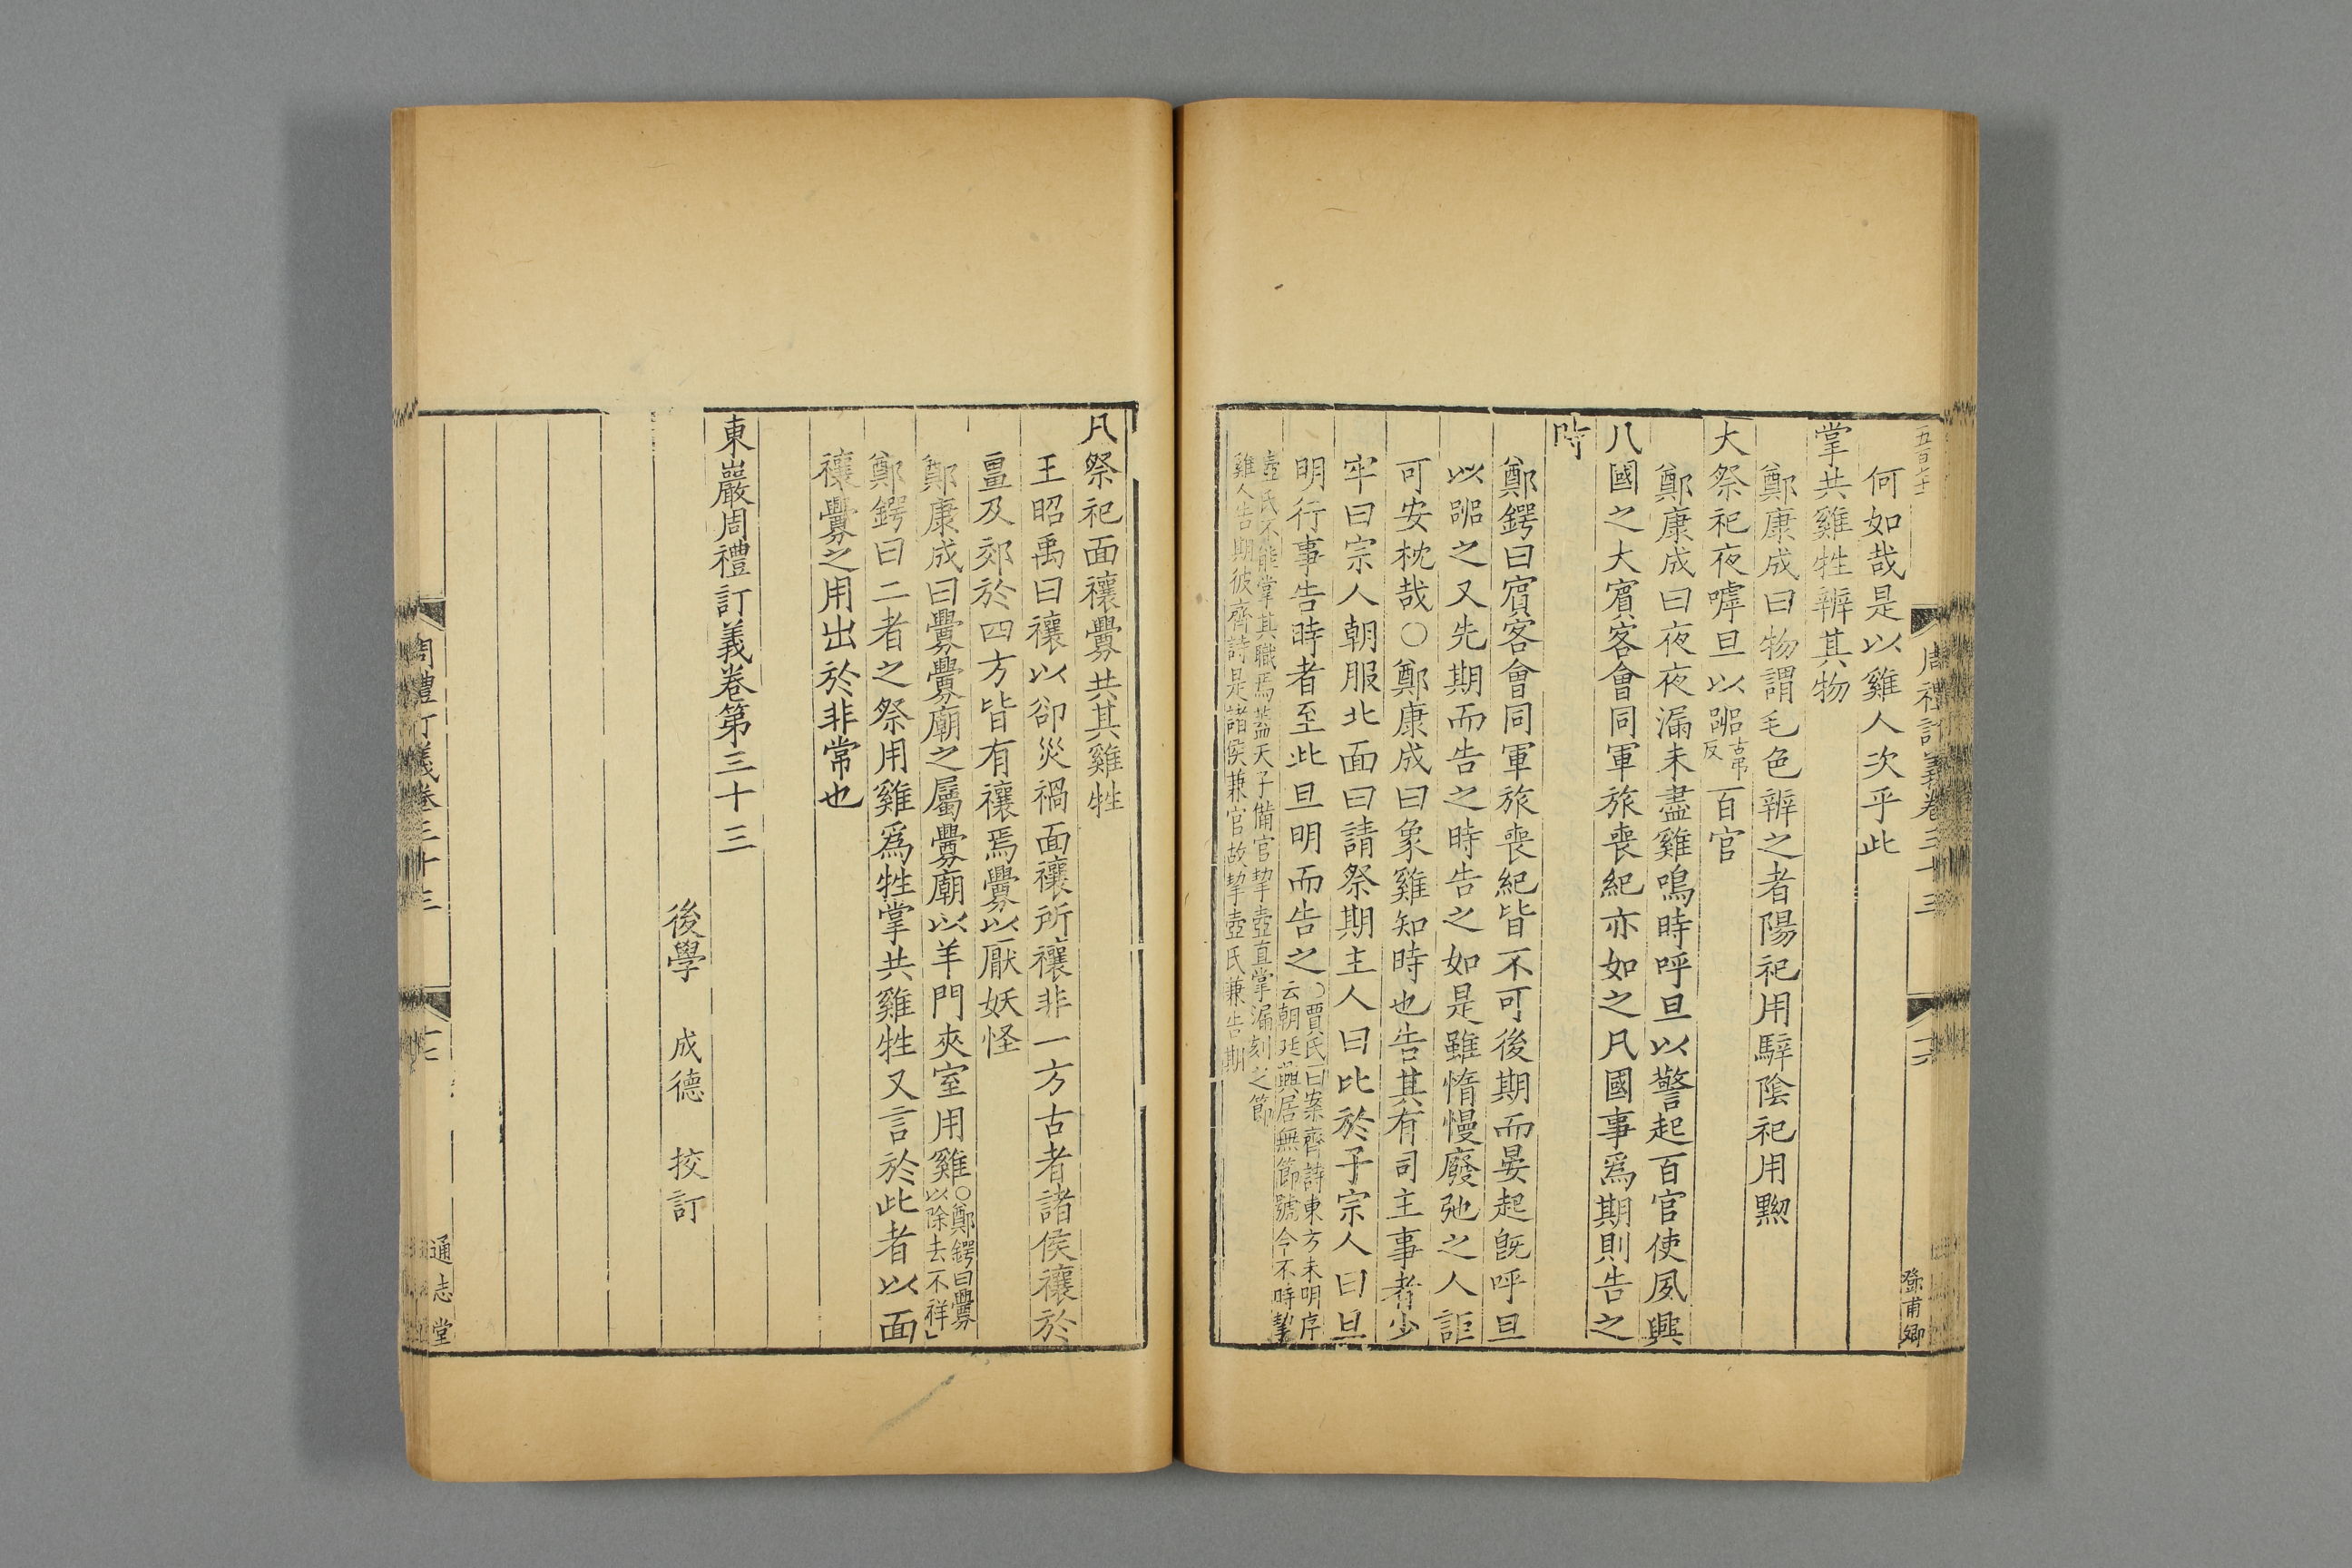 何如哉是以雞人次乎此
掌共雞牲辨其物
鄭康成曰物謂毛色辨之者陽祀用騂陰祀用黝
大祭祀夜嘑旦以嘂古弔反百官
鄭康成曰夜夜漏未盡雞鳴時呼旦以警起百官使夙興
凡國之大賓客會同軍旅喪紀亦如之凡國事爲期則告之
時
鄭鍔曰賓客會同軍旅喪紀皆不可後期而晏起旣呼旦
以嘂之又先期而告之時告之如是雖惰慢廢弛之人詎
可安枕哉○鄭康成曰象雞知時也告其有司主事者少
牢曰宗人朝服北面曰請祭期主人曰比於子宗人曰旦
明行事告時者至此旦明而告之○賈氏曰案齊詩東方未明序
云朝廷興居無節號令不時挈
壺氏不能掌其職焉蓋天子備官挈壺直掌漏刻之節
雞人告期彼齊詩是諸侯兼官故挈壺氏兼告期
周禮訂義卷三十三
凡祭祀面禳釁共其雞牲
王昭禹曰禳以卻災禍面禳所禳非一方古者諸侯禳於
畺及郊於四方皆有禳焉釁以厭妖怪
鄭康成曰釁釁廟之屬釁廟以羊門夾室用雞○鄭鍔曰釁
以除去不祥
鄭鍔曰二者之祭用雞爲牲掌共雞牲又言於此者以面
禳釁之用出於非常也
東巖周禮訂義卷第三十三
後學 成德 挍訂
周禮訂義卷三十三
通志堂